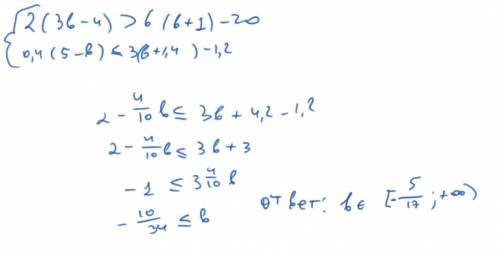 { 2(3b-4) > 6(b+1)-20
0,4(5-b) ≤ 3(b+1,4)-1,2
2 - 4/10 b ≤ 3b + 4,2 - 1,2
2 - 4/10 b ≤ 3b + 3
-1 ≤ 3 4/10 b
- 10/34 ≤ b
ответ: b ∈ [-5/17; +∞)